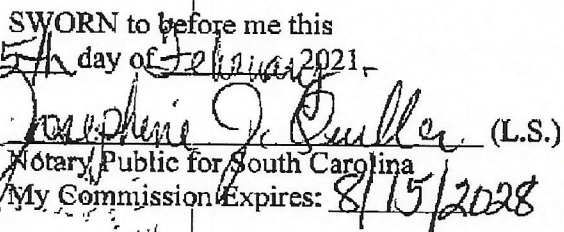 SWORN to before me this
5th day of February 2021.
Josephine J. (L.S.)
Notary Public for South Carolina
My Commission Expires: 8/15/2028